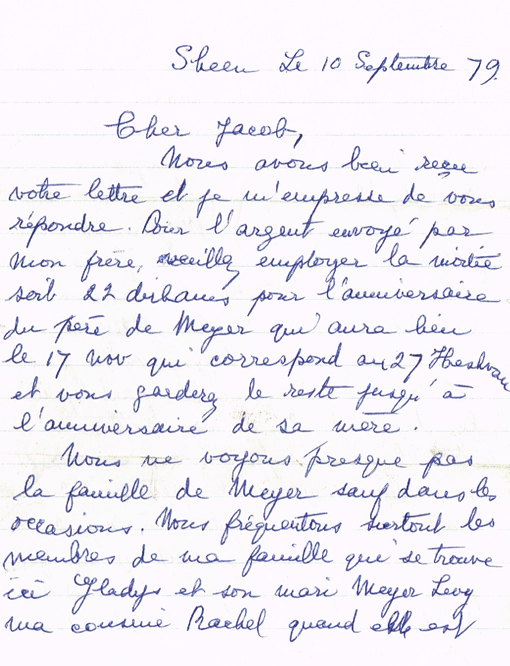 Sheen Le 10 Septembre 79.
Cher Jacob,
Nous avons bien reçu
votre lettre et je m'empresse de vous
répondre. Pour l'argent envoyé par
mon frère, veuillez employer la moitié
soit 22 dirhams pour l'anniversaire
du père de Meyer qui aura lieu
le 17 Nov qui correspond au 27 Heshvan
et vous garderez le reste jusqu'à
l'anniversaire de sa mère.
Nous ne voyons presque pas
la famille de Meyer sauf dans les
occasions. Nous fréquentons surtout les
membres de ma famille qui se trouve
ici Gladys et son mari Meyer Levy
ma cousine Rachel quand elle est